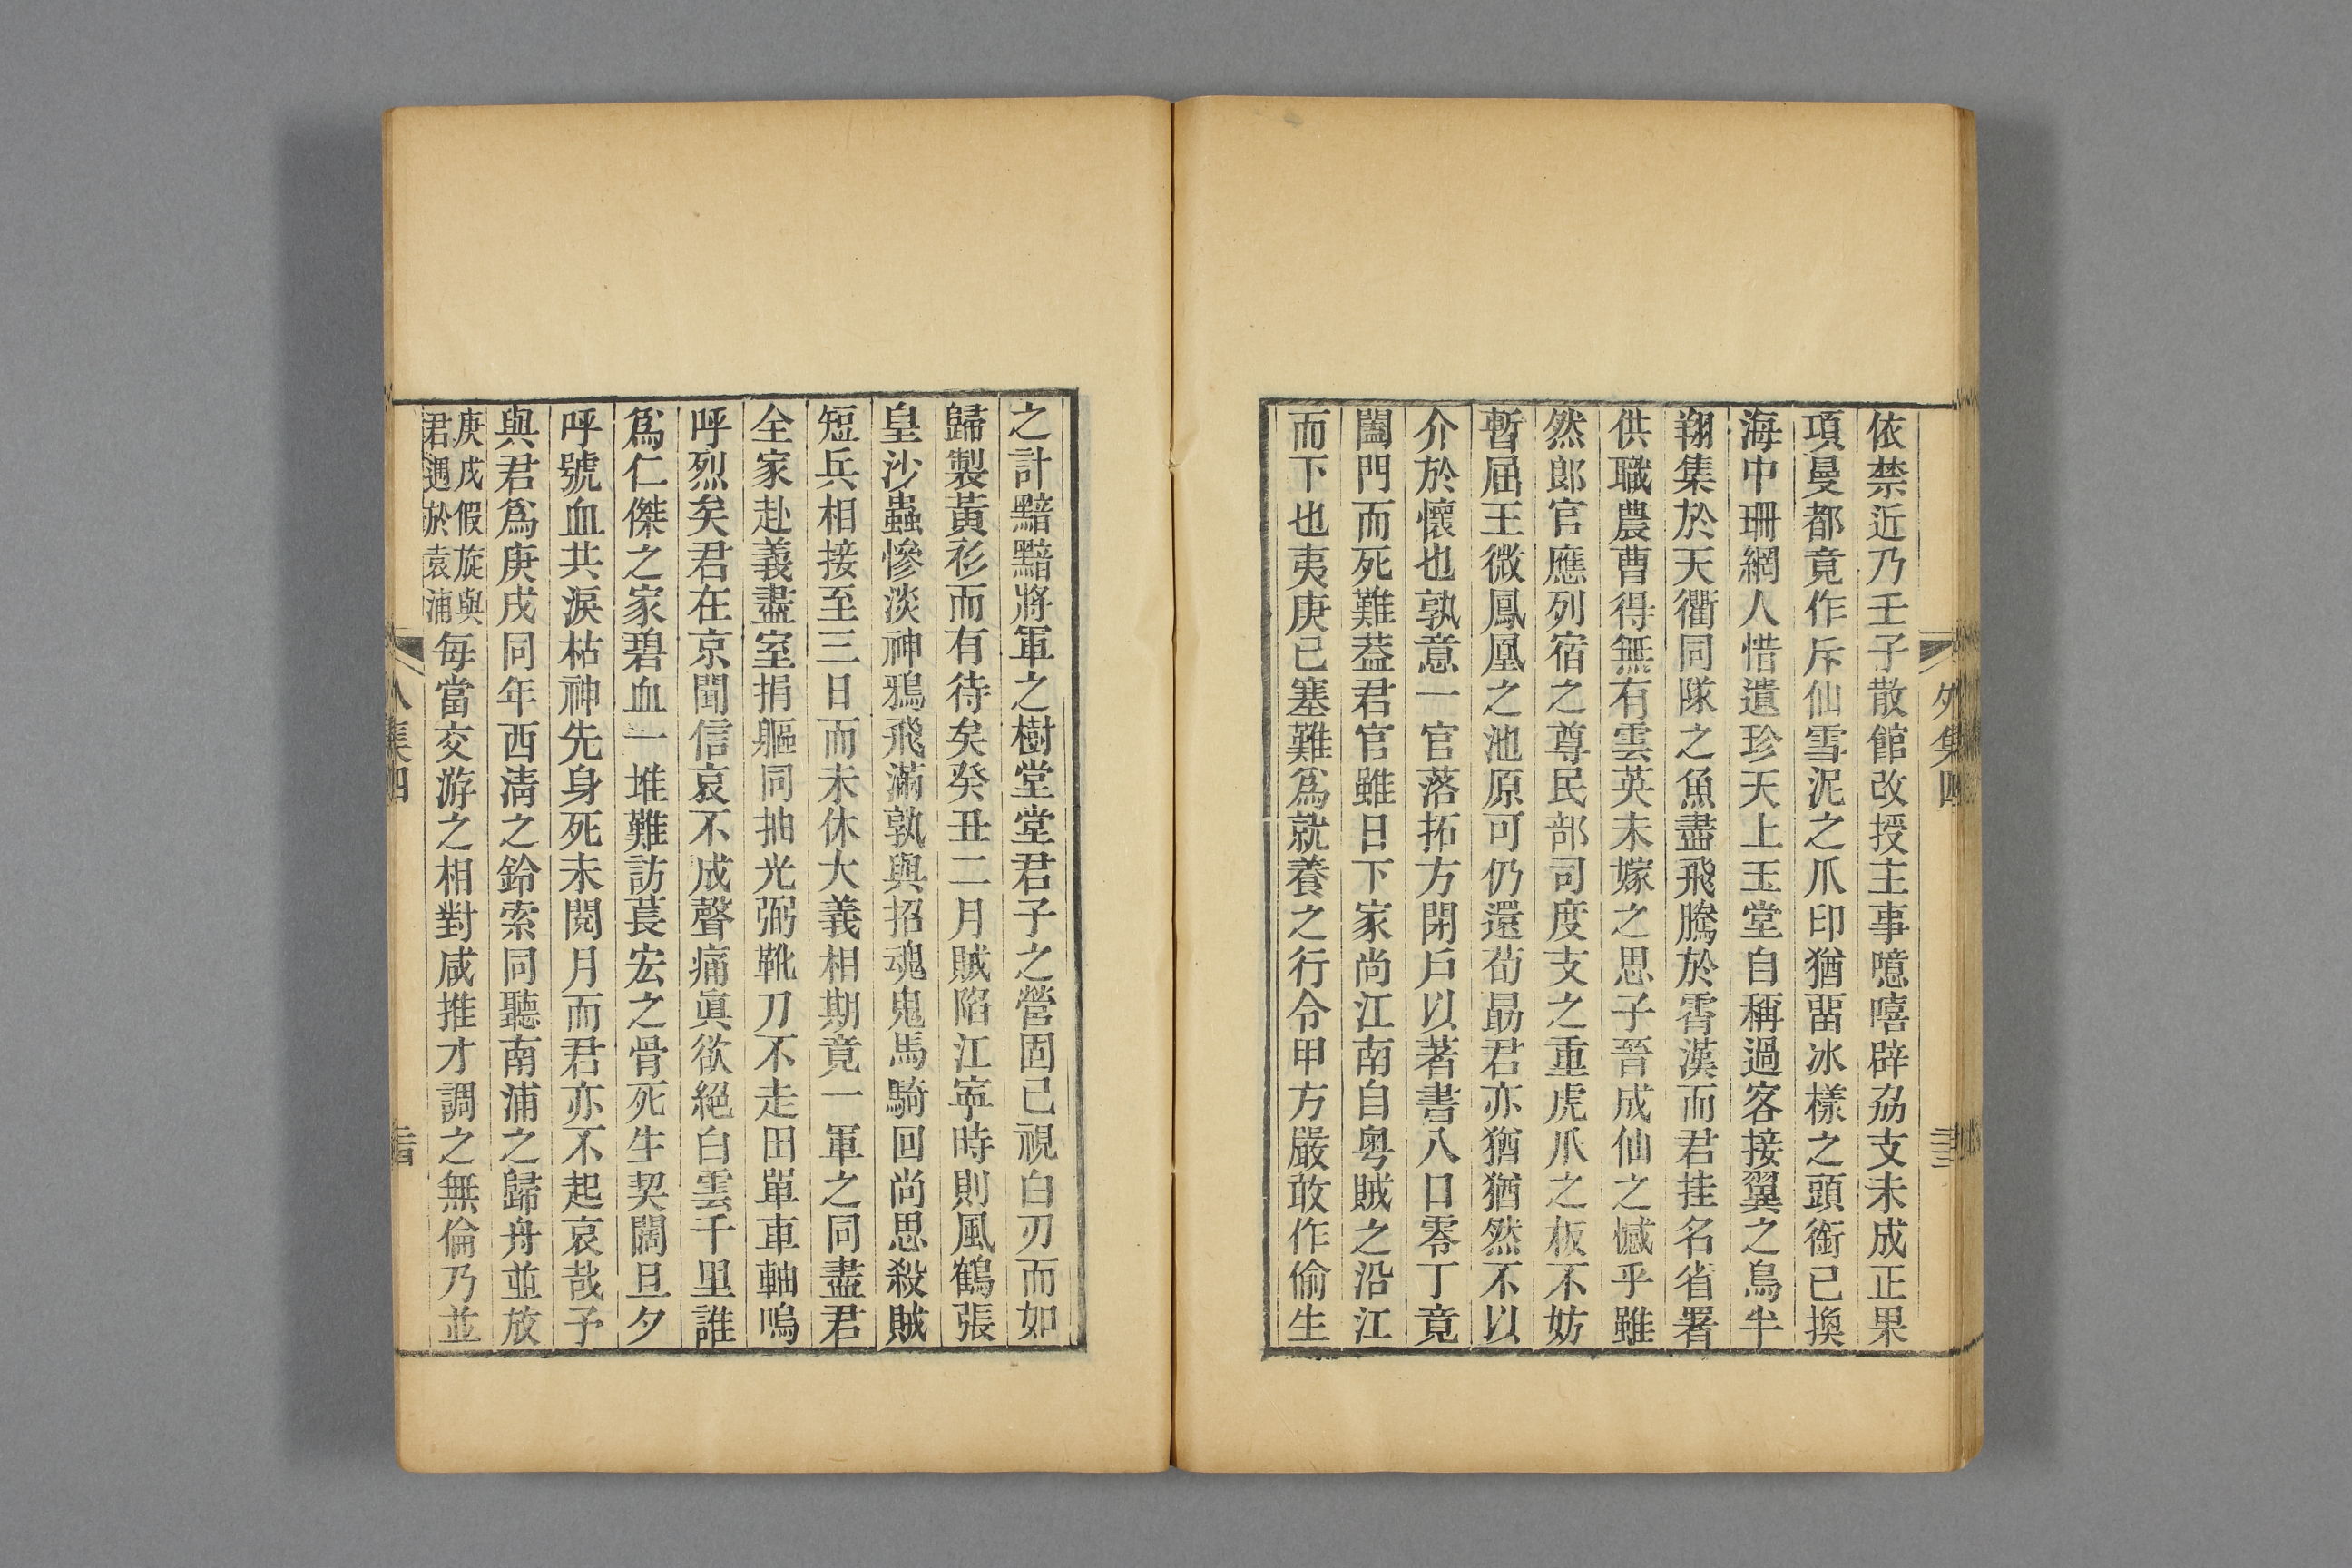 依禁近乃壬子散館改授主事噫嘻辟劦支未成正果
項曼都竟作斥仙雪泥之爪印猶畱冰樣之頭銜已換
海中珊網人惜遺珍天上玉堂自稱過客接翼之鳥半
翔集於天衢同隊之魚盡飛騰於霄漢而君挂名省署
供職農曹得無有雲英未嫁之思子晉成仙之憾乎雖
然郎官應列宿之尊民部司度支之重虎爪之板不妨
暫屈王微鳳凰之池原可仍還荀勗君亦猶猶然不以
介於懷也孰意一官落拓方閉戶以著書八口零丁竟
闔門而死難葢君官雖日下家尚江南自粤賊之沿江
而下也夷庚已塞難爲就養之行令甲方嚴敢作偷生
之計黯黯將軍之樹堂堂君子之營固已視白刃而如
歸製黃衫而有待矣癸丑二月賊陷江寧時則風鶴張
皇沙蟲慘淡神鴉飛滿孰與招魂鬼馬騎回尚思殺賊
短兵相接至三日而未休大義相期竟一軍之同盡君
全家赴義盡室捐軀同抽光弼靴刀不走田單車軸嗚
呼烈矣君在京聞信哀不成聲痛眞欲絕白雲千里誰
爲仁傑之家碧血一堆難訪萇宏之骨死生契闊旦夕
呼號血共淚枯神先身死未閱月而君亦不起哀哉予
與君爲庚戌同年西淸之鈴索同聽南浦之歸舟並放
庚戌假旋與
君遇於袁浦
每當交游之相對咸推才調之無倫乃並
外集四
三三